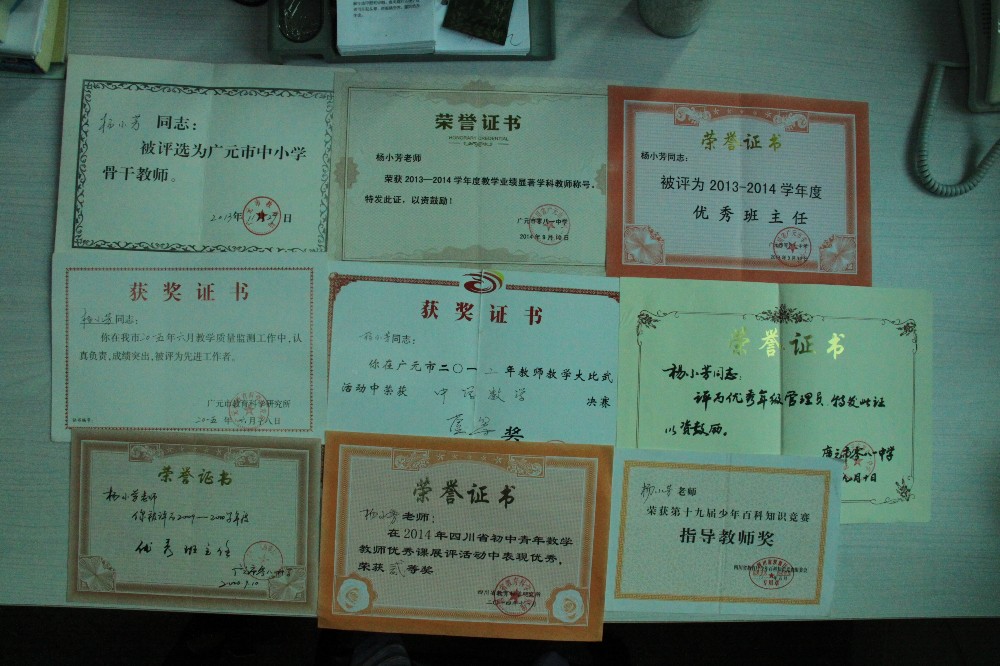 杨小芳 同志：
被评选为广元市中小学
骨干教师。
荣誉证书
HONORARY CREDENTIAL
杨小芳老师
荣获2013—2014学年度教学业绩显著学科教师称号。
特发此证，以资鼓励！
广元市零八一中学
2014年9月10日
荣誉证书
杨小芳同志：
被评为2013-2014学年度
优秀班主任
获奖证书
杨小芳同志：
你在我市二〇一五年六月教学质量监测工作中，认
真负责，成绩突出，被评为先进工作者。
广元市教育科学研究所
获奖证书
杨小芳同志：
你在广元市二〇一二年教师教学大比武
活动中荣获 中学数学 决赛
奖
荣誉证书
杨小芳同志：
评为优秀年级管理员 特发此证
以资鼓励。
广元市零八一中学
九月十日
荣誉证书
杨小芳老师
你被评为2009—2010学年度
优秀班主任
荣誉证书
杨小芳老师：
在2014年四川省初中青年数学
教师优秀课展评活动中表现优秀，
荣获 贰等奖
四川省教育科学研究所
杨小芳老师
荣获第十九届少年百科知识竞赛
指导教师奖